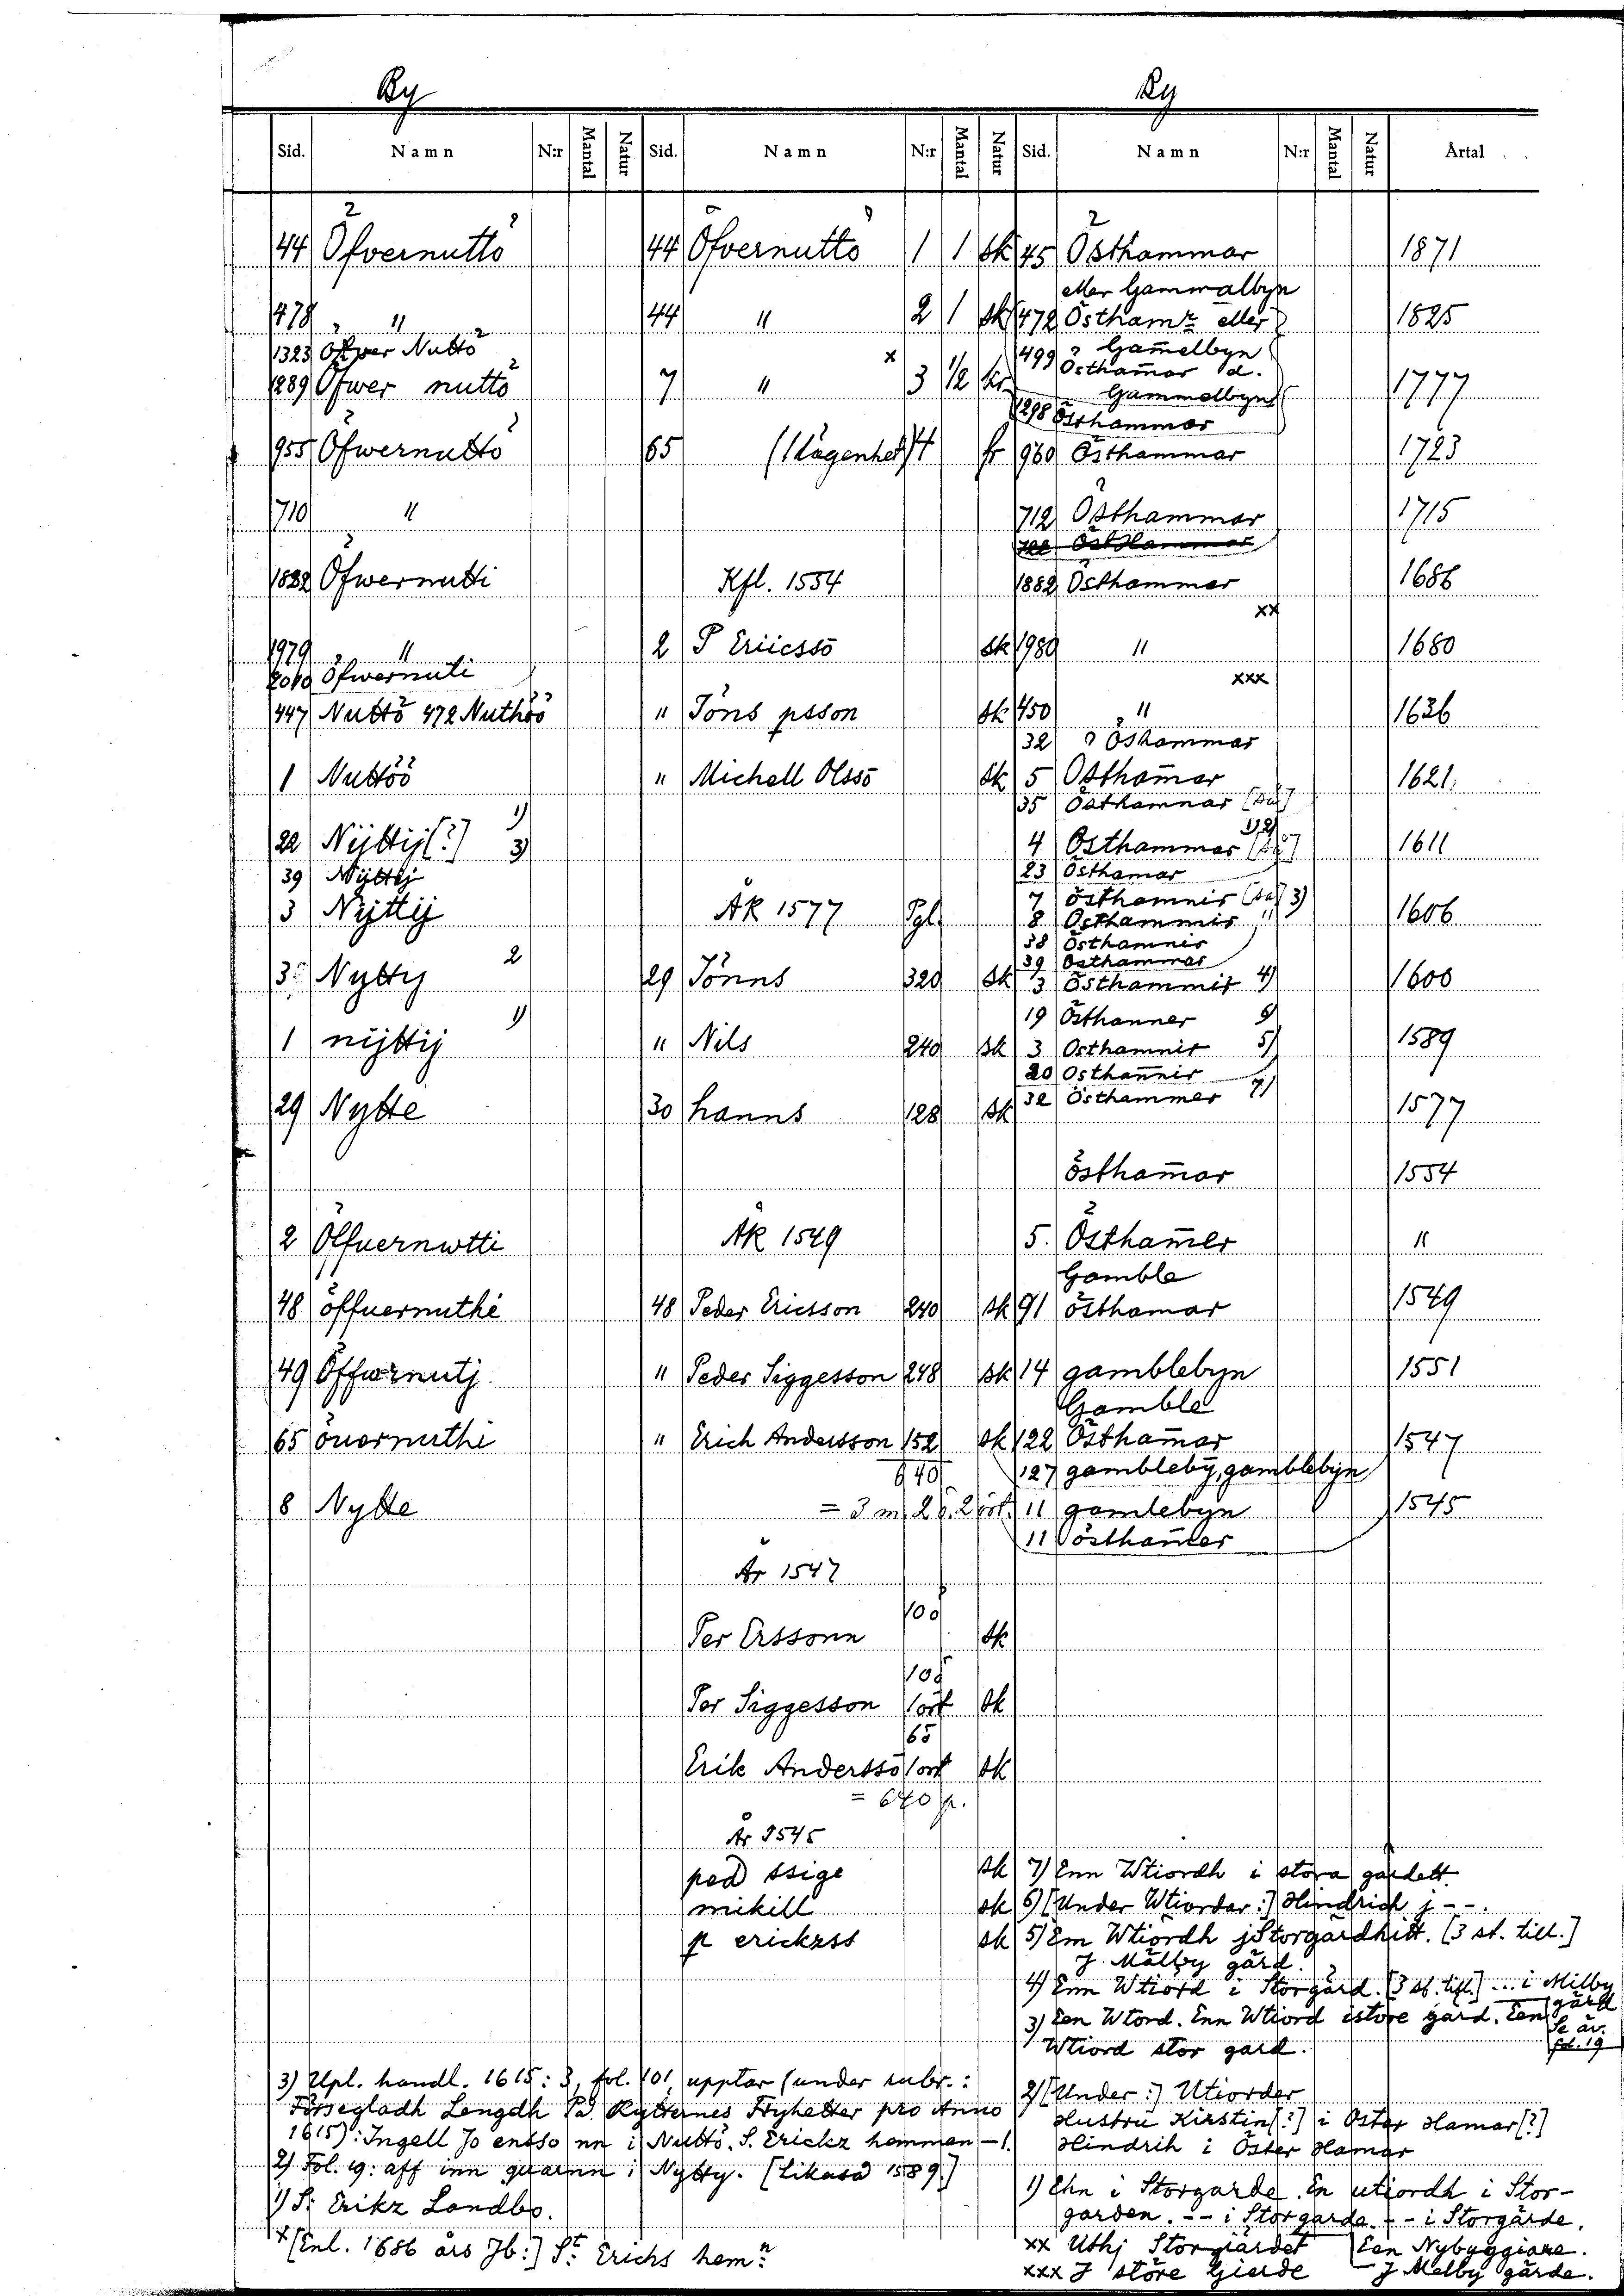 By By
Sid. Namn N:r Mantal Natur Sid. Namn N:r Mantal Natur Sid. Namn N:r Mantal Natur Årtal
44 Öfvernuttö 44 Öfvernuttö 1 1 sk 45 Östhammar 1871
eller Gammalbyn
478 " 44 " 2 1 sk 472 Östhamr eller 1825
1323 Öfwer Nuttö 499 Gam̄elbyn
Östham̄ar d.
1289 Öfwer nuttö 7 " x 3 1/2 kr Gammelbyn 1777
1298 Östhammar
955 Öfwernuttö 65 (1 lägenhet) 4 fr 960 Östhammar 1723
710 " 712 Östhammar 1715
1882 Öfwernutti Kfl. 1554 1882 Östhammar 1686
xx
1979 " 2 P Eriicssō sk 1980 " 1680
2010 Öfwernuti xxx
447 Nuttö 472 Nuthöö " Jöns psson sk 450 " 1636
32 Öshammar
1 Nuttöö " Michell Olssō sk 5 Östham̄ar 1621
35 Östhamnar [så!]
22 Nijttij [?] 1) 3) 4 Östhammar [så!] 1) 2) 1611
39 Nijttij 23 Östhamar
3 Nijttij ÅR 1577 Pgl. 7 östhamnir [så!] 3) 1606
8 Östhammir "
38 Östhamnir
39 Östhammar
35 Nytty 2 29 Jönns 320 sk 3 Östhammir 4) 1600
19 Östhanner 6)
1 nijttij 1) " Nils 240 sk 3 Osthamnir 5) 1589
20 Osthan̄nir
29 Nytte 30 hanns 128 sk 32 Östhammer 7) 1577
östham̄ar 1554
2 Öffuernwtti ÅR 1549 5. Östham̄er "
Gamble
48 öffuernuthi 48 Peder Ericsson 240 sk 91 östhamar 1549
49 Öffwrnutj " Peder Siggesson 248 sk 14 gamblebyn 1551
Gamble
65 öuernuthi " Erich Andersson 152 sk 122 Östham̄ar 1547
640 127 gambleby, gamblebyn
8 Nytte = 3 m. 2 ö. 2 ört. 11 gamlebyn 1545
11 östham̄er
År 1547
Per Erssonn 10ö sk
Per Siggesson 10ö 1 ört sk
Erik Anderssō 6ö 1 ört sk
= 640 p.
År 1545
ped ssige sk 7) Enn Wtiordh i stora gardett
mikill sk 6) [Under Wtiordar:] Hindrich j --.
p erickzss sk 5) Em Wtiordh j Storgardhitt. [3 st. till.]
J Mälby gård.
4) Enn Wtiord i Storgård. [3 st. till.] ... i Milby gärd
3) Een Wtord. Enn Wtiord i store gard. Een Se äv. fol. 19
Wtiord stor gard.
3) Upl. handl. 1615: 3, fol. 101, upptar (under rubr.:
Försegladh Lengdh På Rytternes Fryhetter pro Anno
1615): Ingell Jo ensso nn i Nuttö. S. Erickz hemman – 1.
2) Fol. 19: aff inn quarnn i Nytty. [Likaså 1589.]
1) S: Erikz Landbo.
x [Enl. 1686 års Jb:] St Erichs hemn
2) [Under:] Utiorder
Hustru Kirstin [?] i Öster Hamar [?]
Hindrih i Öster Hamar
1) Ehn i Storgarde. En utiordh i Stor-
garden. -- i Storgarda. -- i Storgärde.
xx Uthj Storgiärdet Een Nybyggiare.
xxx J störe Gierde – J Melby gärde.